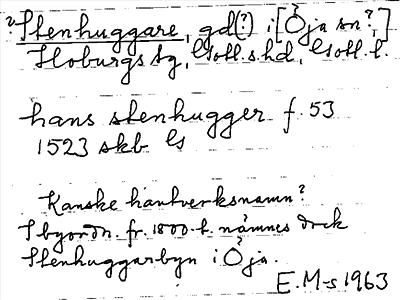 ? Stenhuggare, gd(?) i [Öja sn?,]
Hoburgs tg, Gotl. s. hd, Gotl. l.
hans stenhugger f. 53
1523 skb Gs
Kanske hantverksnamn?
I byordn. fr. 1800-t. nämnes dock
Stenhuggarbyn i Öja.
E. M-s 1963